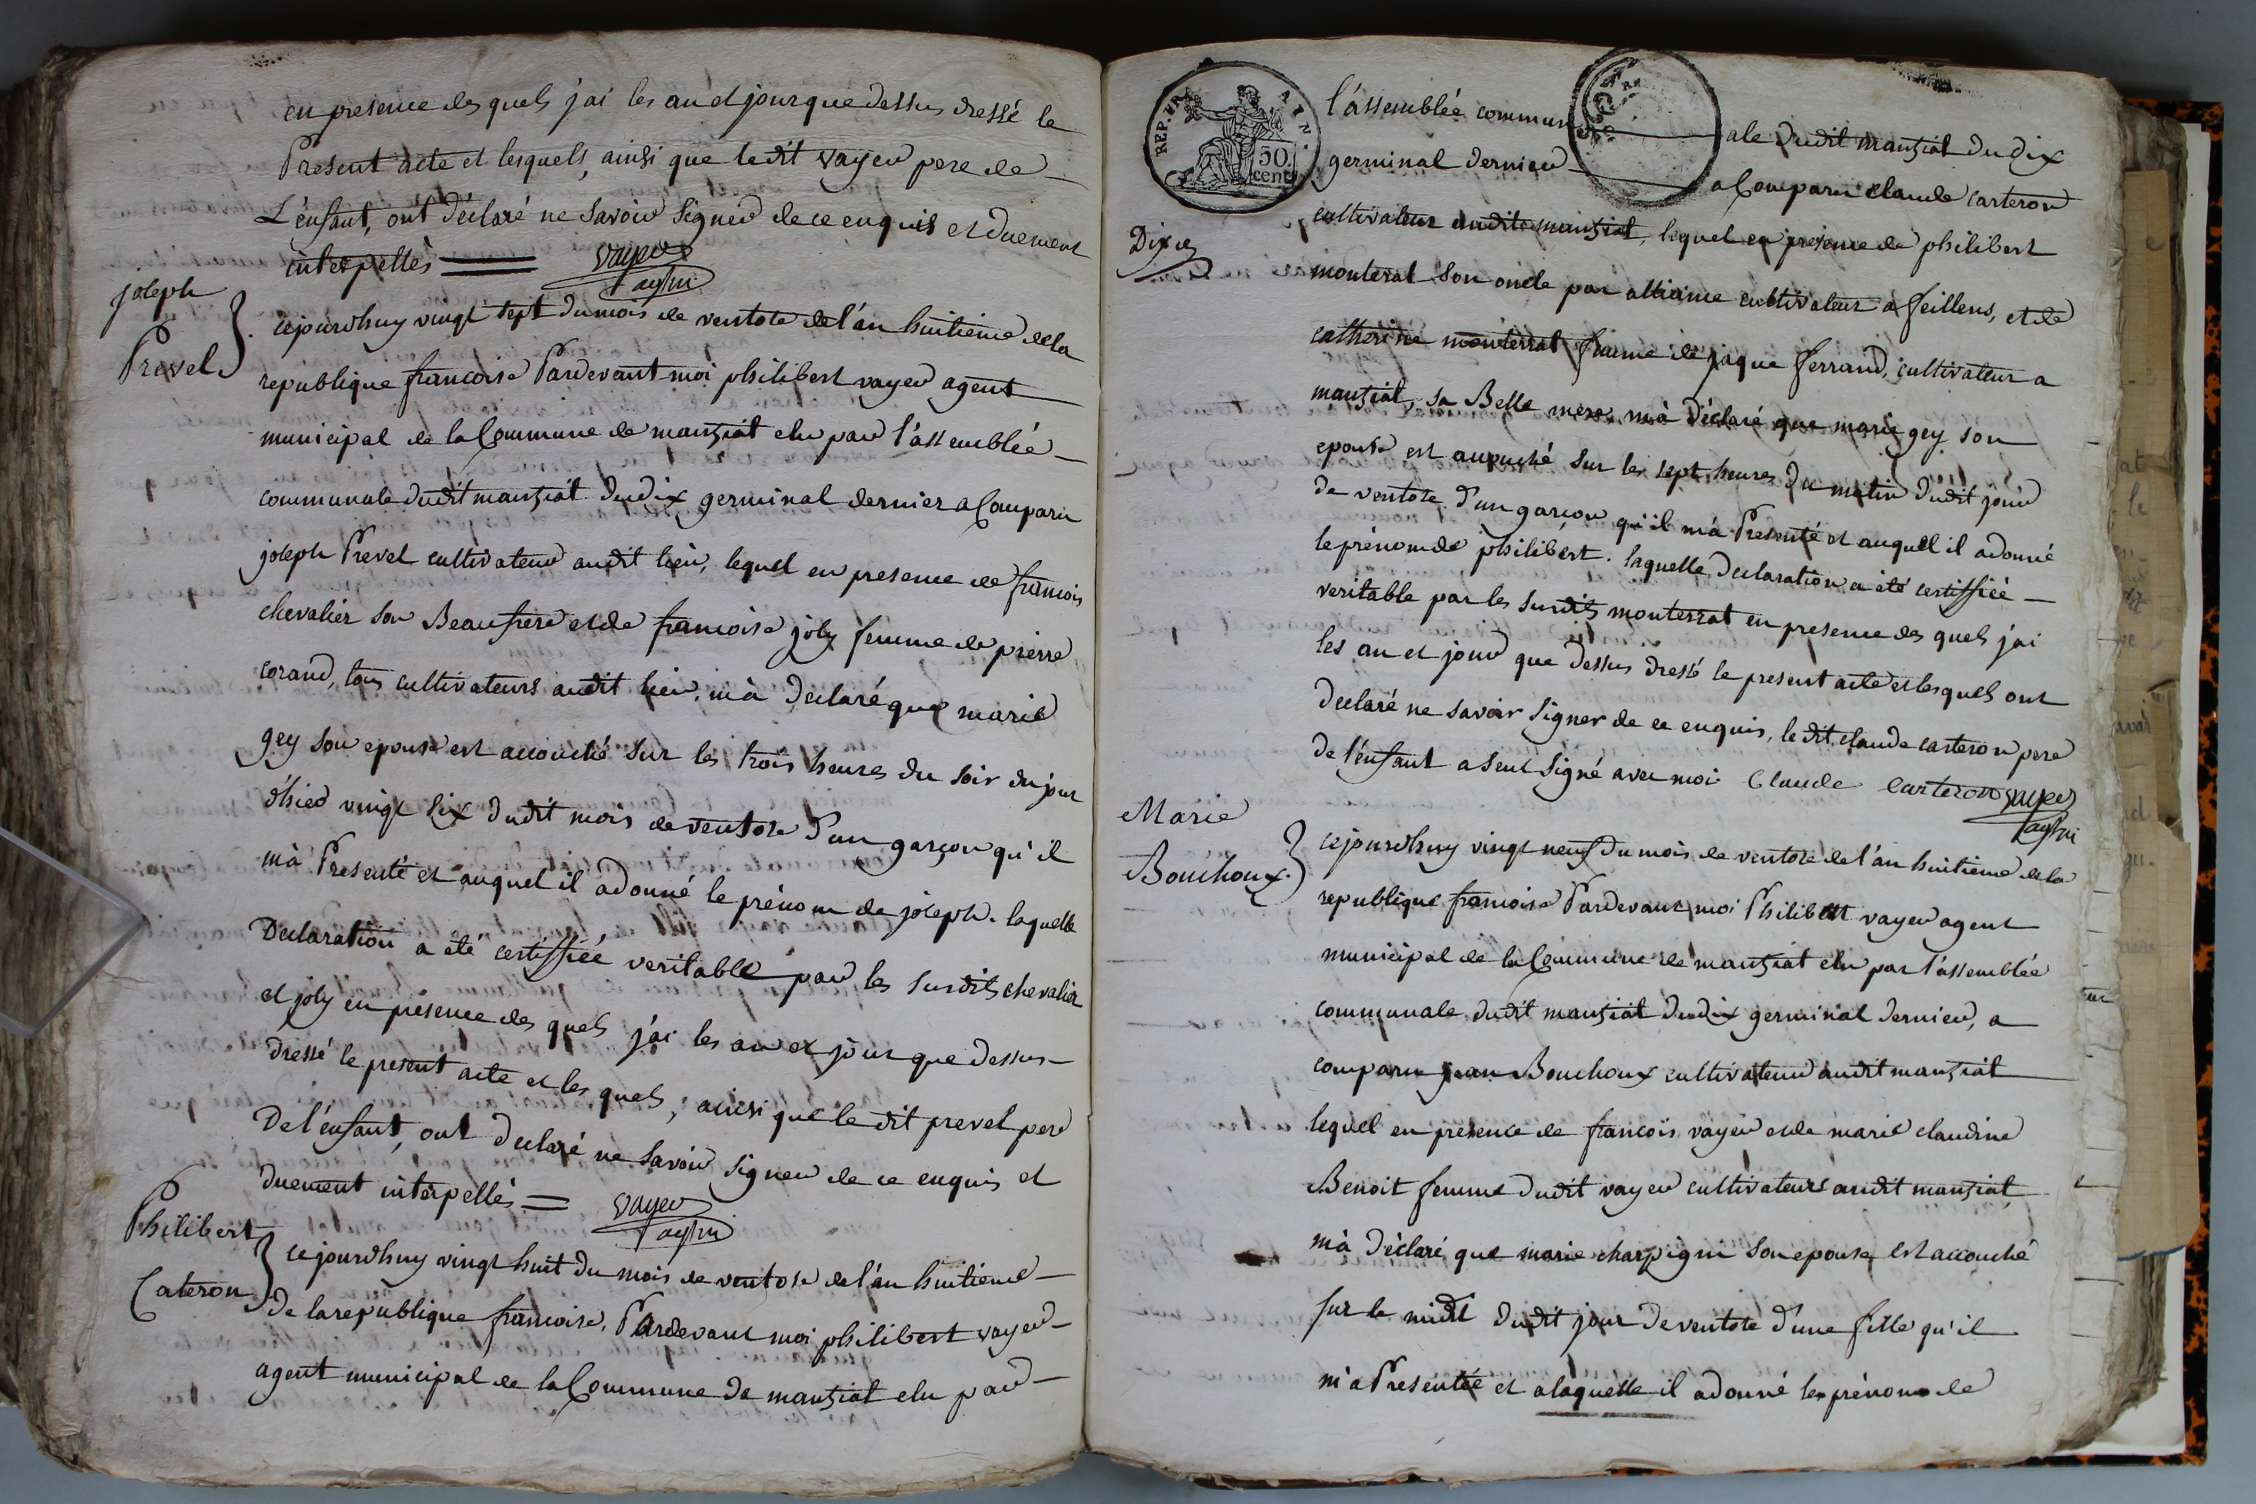 en presence des quels j'ai les an et jour que dessus dressé le
Present acte et lesquels, ainsi que ledit vayer pere de
L'énfant, ont déclaré ne savoir signer de ce enquis et duement
interpellès
vayer
agt mi
joseph
Prevel
cejourdhuy vingt sept du mois de ventose de l'an huitieme dela
republique francoise Pardevant moi philibert vayer agent
municipal de la Commune de mantziat elu par l'assemblée
communale dudit mantziat du dix germinal dernier a Comparu
joseph Prevel cultivateur audit lieu, lequel en presence de francois
chevalier son Beaufrere et de francoise joly femme de pierre
corand, tous cultivateurs audit lieu, m'à declaré que marie
gey son epouse est accouché sur les trois heures du soir du jour
d'hier vingt six dudit mois de ventose d'un garçon qu'il
m'à Presenté et auquel il a donné le prénom de joseph. laquelle
Declaration a été certiffiée veritable par les susdits chevalier
et joly en présence des quels j'ai les an et jour que dessus
dressé le present acte et les quels, ainsi que le dit prevel pere
De l'énfant, ont declaré ne savoir signer de ce enquis et
duement interpellés
vayer
agt mi
Philibert
Cateron
cejourdhuy vingt huit du mois de ventose de l'an huitieme
de la republique francoise, Pardevant moi philibert vayer
agent municipal de la Commune de mantziat elu par
REP. FRA
50.
cent.
l'assemblée communale dudit mantziat du dix
germinal dernier a Comparu claude carteron
Dix
cultivateur audit mantziat, lequel en presence de philibert
monterat son oncle par alliance cultivateur a feillens, et de
catherine monterrat femme de jaque ferrand, cultivateur a
mantziat, sa Belle mere, m'à déclaré que marie gey son
epouse est accouché sur les sept heures du matin dudit jour
de ventose d'un garcon qu'il m'à Presenté et auquel il a donné
le prénom de philibert. laquelle declaration a été certiffiée
veritable par les susdits monterrat en presence des quels j'ai
les an et jour que dessus dressé le present acte et lesquels ont
declaré ne savoir signer de ce enquis, le dit claude carteron pere
de l'énfant a seul signé avec moi Claude Carteron vayer
agt mi
Marie
Bouchoux
cejourdhuy vingt neuf du mois de ventose de l'an huitieme dela
republique francoise Pardevant moi Philibert vayer agent
municipal de la Commune de mantziat elu par l'assemblée
communale dudit mantziat du dix germinal dernier, a
comparu jean Bouchoux cultivateur audit mantziat
lequel en presence de francois vayer et de marie claudine
Benoit femme dudit vayer cultivateurs audit mantziat
m'à déclaré que marie charpigni son epouse est accouché
sur le midi dudit jour de ventose d'une fille qu'il
m'a Presentée et a laquelle il a donné les prénoms de